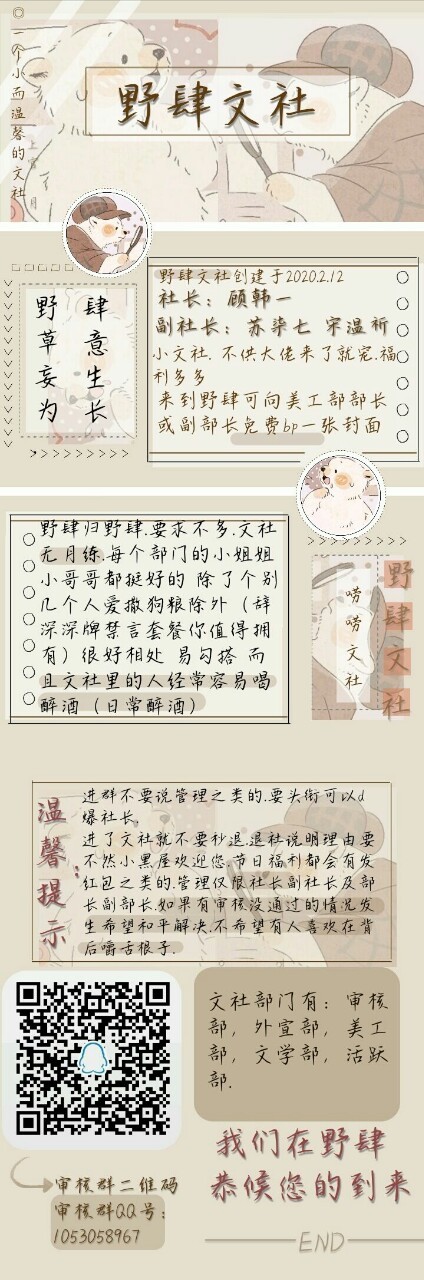 一个小而温馨的文社
野肆文社
肆意生长
野草妄为
野肆文社创建于2020.2.12
社长：顾韩一
副社长：苏柒七 宋温祈
小文社.不供大佬来了就宠.福
利多多
来到野肆可向美工部部长
或副部长免费bp一张封面
野肆归野肆.要求不多.文社
无月练.每个部门的小姐姐
小哥哥都挺好的 除了个别
几个人爱撒狗粮除外（辞
深深牌禁言套餐你值得拥
有）很好相处 易勾搭 而
且文社里的人经常容易喝
醉酒（日常醉酒）
野肆文社
唠唠文社
温馨提示：
进群不要说管理之类的.要头衔可以d
爆社长.
进了文社就不要秒退.退社说明理由要
不然小黑屋欢迎您.节日福利都会有发
红包之类的.管理仅限社长副社长及部
长副部长.如果有审核没通过的情况发
生希望和平解决.不希望有人喜欢在背
后嚼舌根子.
文社部门有：审核
部，外宣部，美工
部，文学部，活跃
部.
审核群二维码
审核群QQ号：
1053058967
我们在野肆
恭候您的到来
END